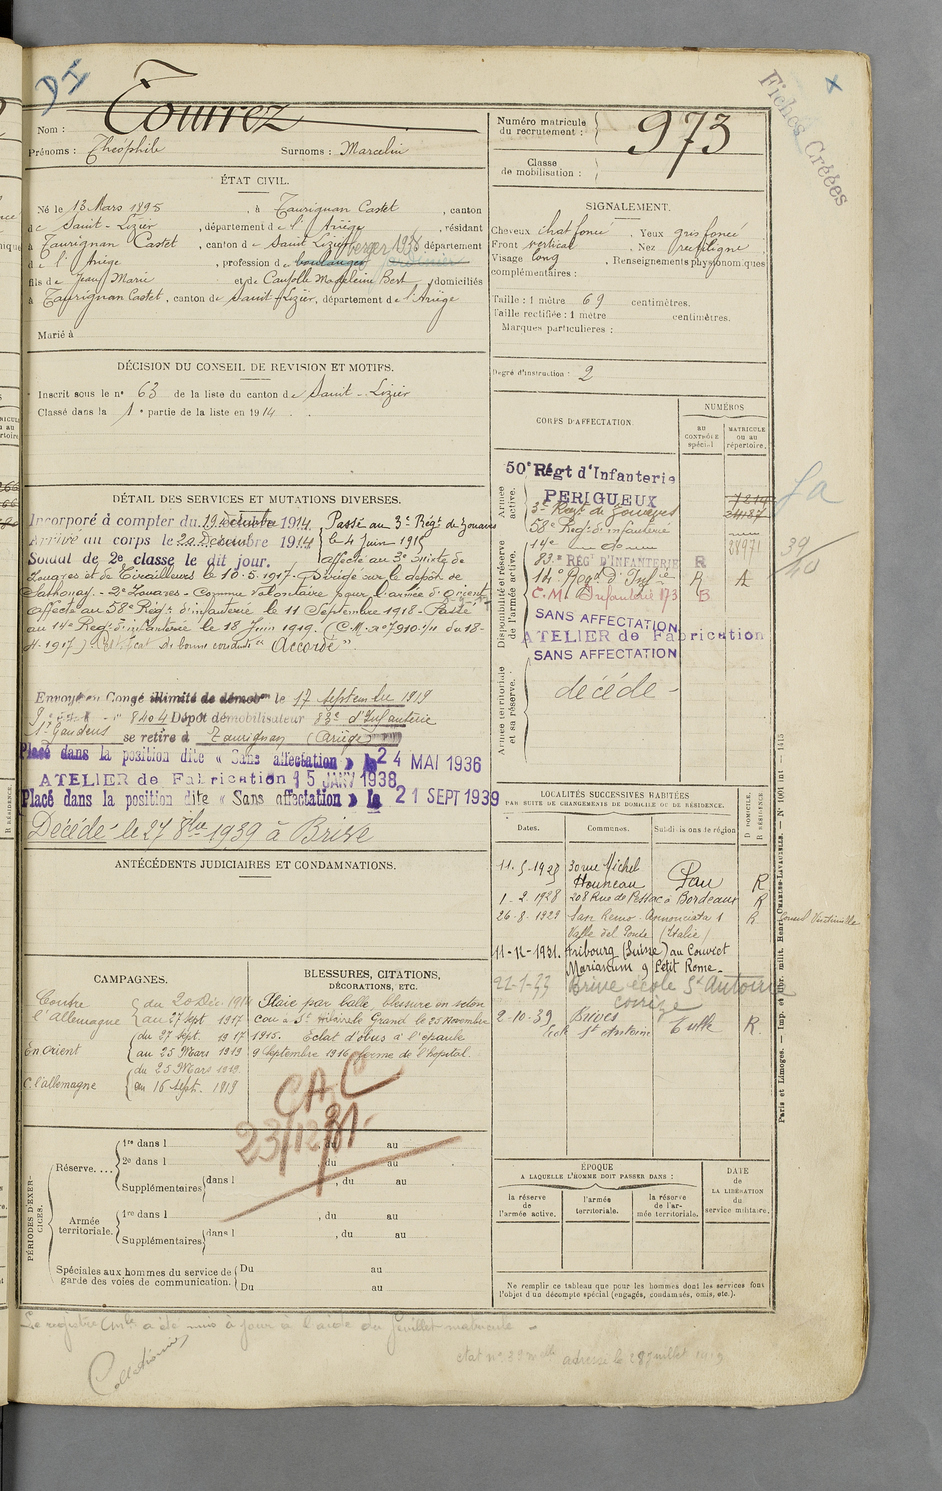 DI
Fichés Créées
Nom : Tourrez
Prénoms : Théophile Surnoms : Marcelin
Numéro matricule du recrutement : 973
Classe de mobilisation :
ÉTAT CIVIL.
Né le 13 Mars 1895, à Taurignan Castet, canton
de Saint-Lizier, département de l'Ariège, résidant
à Taurignan Castet, canton de Saint Lizier, département
berger 1938
de l'Ariège, profession de boulanger
fils de Jean Marie et de Madeleine Bert domiciliés
à Taurignan Castet, canton de Saint-Lizier, département de l'Ariège
Marié à
SIGNALEMENT.
Cheveux chat foncé. Yeux gris foncé
Front vertical. Nez rectiligne
Visage long. Renseignements physionomiques
complémentaires :
Taille : 1 mètre 69 centimètres.
Taille rectifiée : 1 mètre centimètres.
Marques particulières :
Degré d'instruction : 2
DÉCISION DU CONSEIL DE REVISION ET MOTIFS.
Inscrit sous le n° 63 de la liste du canton de Saint-Lizier
Classé dans la 1e partie de la liste en 1914.
DÉTAIL DES SERVICES ET MUTATIONS DIVERSES.
Incorporé à compter du 19 1914. Passé au 3e Régt de Zouaves
Arrivé au corps le 20 Décembre 1914 le 4 Juin 1915
Soldat de 2e classe le dit jour. affecté au 3e mixte de
Zouaves et de Tirailleurs le 10.5.1917. Dirigé sur le dépôt de
Sathonay. 2e Zouaves. Comme volontaire pour l'armée d'Orient
affecté au 58e Régt d'infanterie le 11 Septembre 1918. Passé
au 14e Régt d'infanterie le 18 Juin 1919. (C.M. n° 7910 du 18-
4-1917) Certificat de bonne conduite "Accordé".
Envoyé en Congé illimité de démob le 17 septembre 1919
8404 Dépôt démobilisateur 83e d'Infanterie
St Gaudens se retire à Taurignan (Ariège)
Placé dans la position dite « Sans affectation » le 24 MAI 1936
ATELIER de Fabrication 15 JANV 1938
Placé dans la position dite « Sans affectation » le 21 SEPT 1939
Décédé le 27 8bre 1939 à Brive
CORPS D'AFFECTATION.
NUMÉROS
AU CONTRÔLE spécial.
MATRICULE OU AU répertoire.
Armée active.
Disponibilité et réserve de l'armée active.
Armée territoriale et sa réserve.
50e Régt d'Infanterie
PERIGUEUX
3e Régt de Zouaves
58e Régt d'infanterie
14e 28971
83e REG' D'INFANTERIE R
14e Régt d'Infie R A
C.M. Infanterie 173 B
SANS AFFECTATION
ATELIER de Fabrication
SANS AFFECTATION
décédé
39
40
LOCALITÉS SUCCESSIVES HABITÉES
PAR SUITE DE CHANGEMENTS DE DOMICILE OU DE RÉSIDENCE.
D DOMICILE. R RÉSIDENCE
Dates. Communes. Subdivisions de région
11.5.1925 30 rue Michel Hounau Pau R
1.2.1928 208 Rue de Pessac à Bordeaux R
26-8.1929 San Remo Annonciata 1 R. Consul Vintimille
Valle del Ponte (Italie)
11-11-1931. Fribourg (Suisse) au Convict
Marianum 9 Petit Rome.
22-1-33 Brive école St Antoine
corrige
2-10-39 Brives Tulle R.
St Antoine
ANTÉCÉDENTS JUDICIAIRES ET CONDAMNATIONS.
CAMPAGNES.
Contre l'Allemagne du 20 Déc. 1914 au 27 Sept 1917
En Orient du 27 Sept. 1917 au 25 Mars 1919
C. l'allemagne du 25 Mars 1919 au 16 Sept. 1919
BLESSURES, CITATIONS,
DÉCORATIONS, ETC.
Plaie par balle, blessure en séton
cou à St Hilaire le Grand le 25 Novembre
1915. Eclat d'obus à l'épaule
9 Septembre 1916
CAC
23/12/31
PÉRIODES D'EXERCICES.
Réserve....
1re dans l , du au
2e dans l , du au
Supplémentaires dans l , du au
Armée territoriale.
1re dans l , du au
Supplémentaires dans l , du au
Spéciales aux hommes du service de garde des voies de communication.
Du au
Du au
ÉPOQUE
A LAQUELLE L'HOMME DOIT PASSER DANS :
la réserve de l'armée active.
l'armée territoriale.
la réserve de l'armée territoriale.
DATE de LA LIBÉRATION du service militaire.
Ne remplir ce tableau que pour les hommes dont les services font
l'objet d'un décompte spécial (engagés, condamnés, omis, etc.).
Le registre mle a été mis à jour à l'aide du feuillet matricule
Paris et Limoges. — Imp. et libr. milit. Henri CHARLES-LAVAUZELLE.